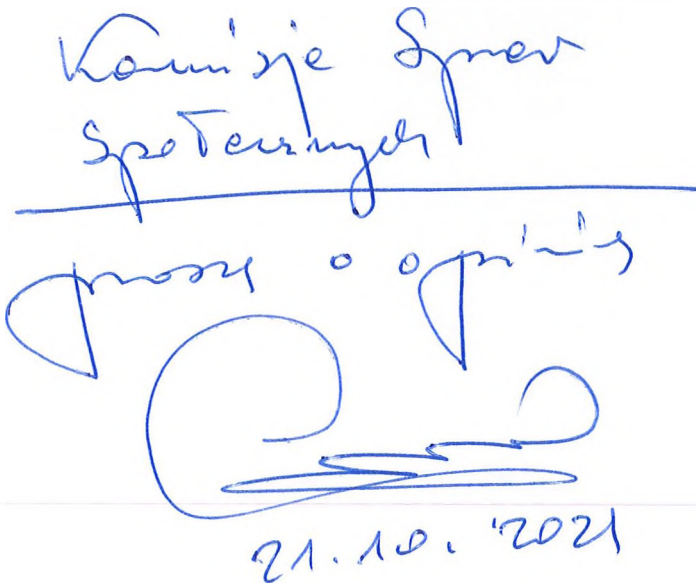 Komisja Spraw
Społecznych
proszę o opinię
21.10.2021